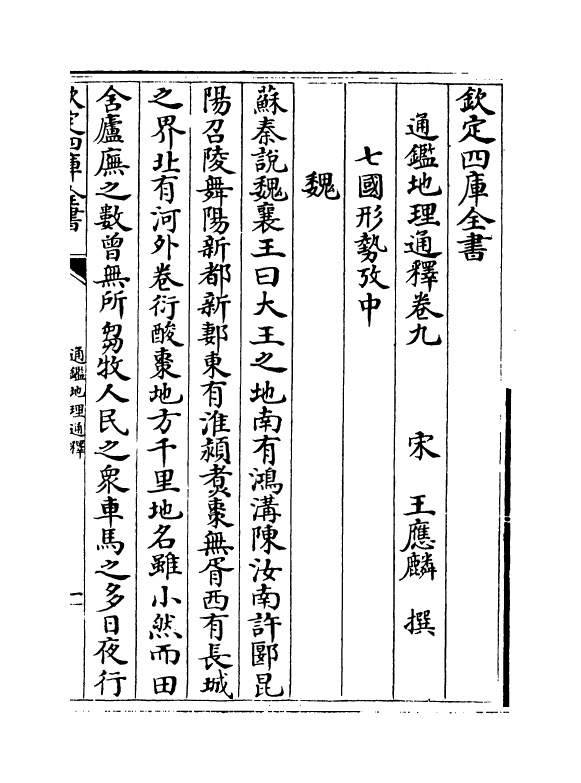 欽定四庫全書
通鑑地理通釋卷九　宋　王應麟　撰
七國形勢攷中
魏
蘇秦說魏襄王曰大王之地南有鴻溝陳汝南許郾昆
陽召陵舞陽新都新郪東有淮潁煑棗無胥西有長城
之界北有河外卷衍酸棗地方千里地名雖小然而田
舍廬廡之數曾無所芻牧人民之衆車馬之多日夜行
欽定四庫全書
通鑑地理通釋
一